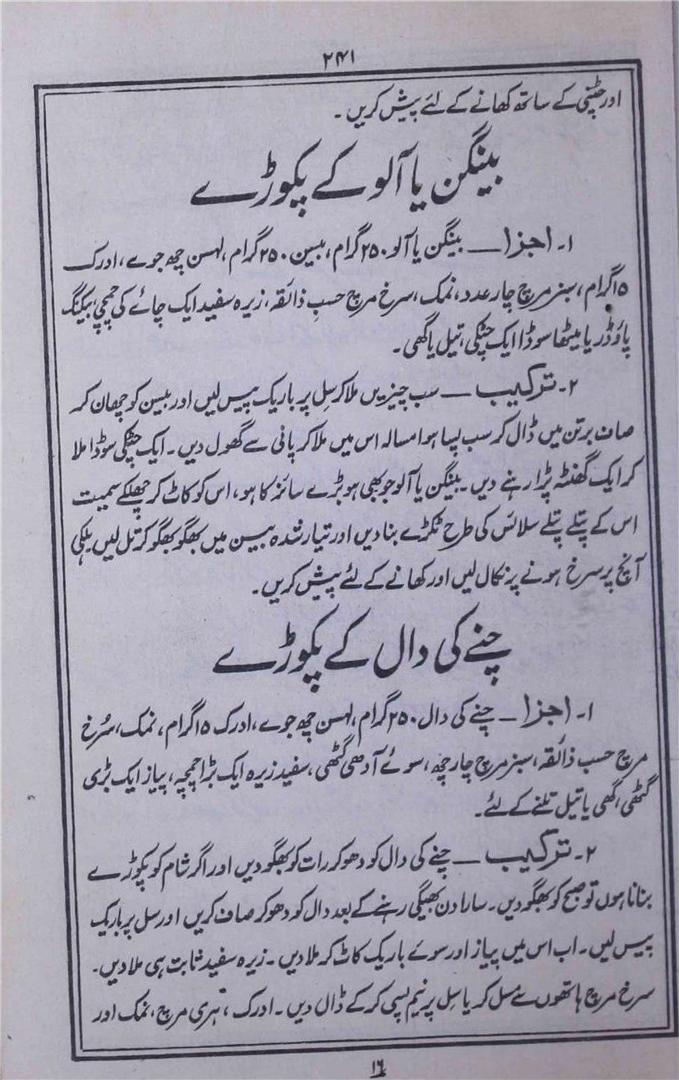 ۲۴۱
اور چٹنی کے ساتھ کھانے کے لئے پیش کریں۔
بینگن یا آلو کے پکوڑے
۱۔ اجزا — بینگن یا آلو ۲۵۰ گرام، بیسن ۲۵۰ گرام، لہسن چھ جوے، ادرک
۱۵ گرام، سبز مرچ چار عدد، نمک، سرخ مرچ حسب ذائقہ، زیرہ سفید ایک چائے کی چمچی، بیکنگ
پاؤڈر یا میٹھا سوڈا ایک چٹکی، تیل یا گھی۔
۲۔ ترکیب — سب چیزیں ملا کر سل پر باریک پیس لیں اور بیسن کو چھان کر
صاف برتن میں ڈال کر سب پسا ہوا مسالہ اس میں ملا کر پانی سے گھول دیں۔ ایک چٹکی سوڈا ملا
کر ایک گھنٹہ پڑا رہنے دیں۔ بینگن یا آلو جو بھی ہو بڑے سائز کا ہو، اس کو کاٹ کر چھلکے سمیت
اس کے پتلے پتلے سلائس کی طرح ٹکڑے بنا دیں اور تیار شدہ بیسن میں بھگو بھگو کر تل لیں ہلکی
آنچ پر سرخ ہونے پر نکال لیں اور کھانے کے لئے پیش کریں۔
چنے کی دال کے پکوڑے
۱۔ اجزا — چنے کی دال ۲۵۰ گرام، لہسن چھ جوے، ادرک ۱۵ گرام، نمک، سُرخ
مرچ حسب ذائقہ، سبز مرچ چار چھ، سوئے آدھی گٹھی، سفید زیرہ ایک بڑا چمچہ، پیاز ایک بڑی
گٹھی، گھی یا تیل تلنے کے لئے۔
۲۔ ترکیب — چنے کی دال کو دھو کر رات کو بھگو دیں اور اگر شام کو پکوڑے
بنانا ہوں تو صبح کو بھگو دیں۔ سارا دن بھیگی رہنے کے بعد دال کو دھو کر صاف کریں اور سل پر باریک
پیس لیں۔ اب اس میں پیاز اور سوے باریک کاٹ کر ملا دیں۔ زیرہ سفید ثابت ہی ملا دیں۔
سرخ مرچ ہاتھوں سے مسل کر یا سل پر نیم پسی کر کے ڈال دیں۔ ادرک، ہری مرچ، نمک اور
۱۶